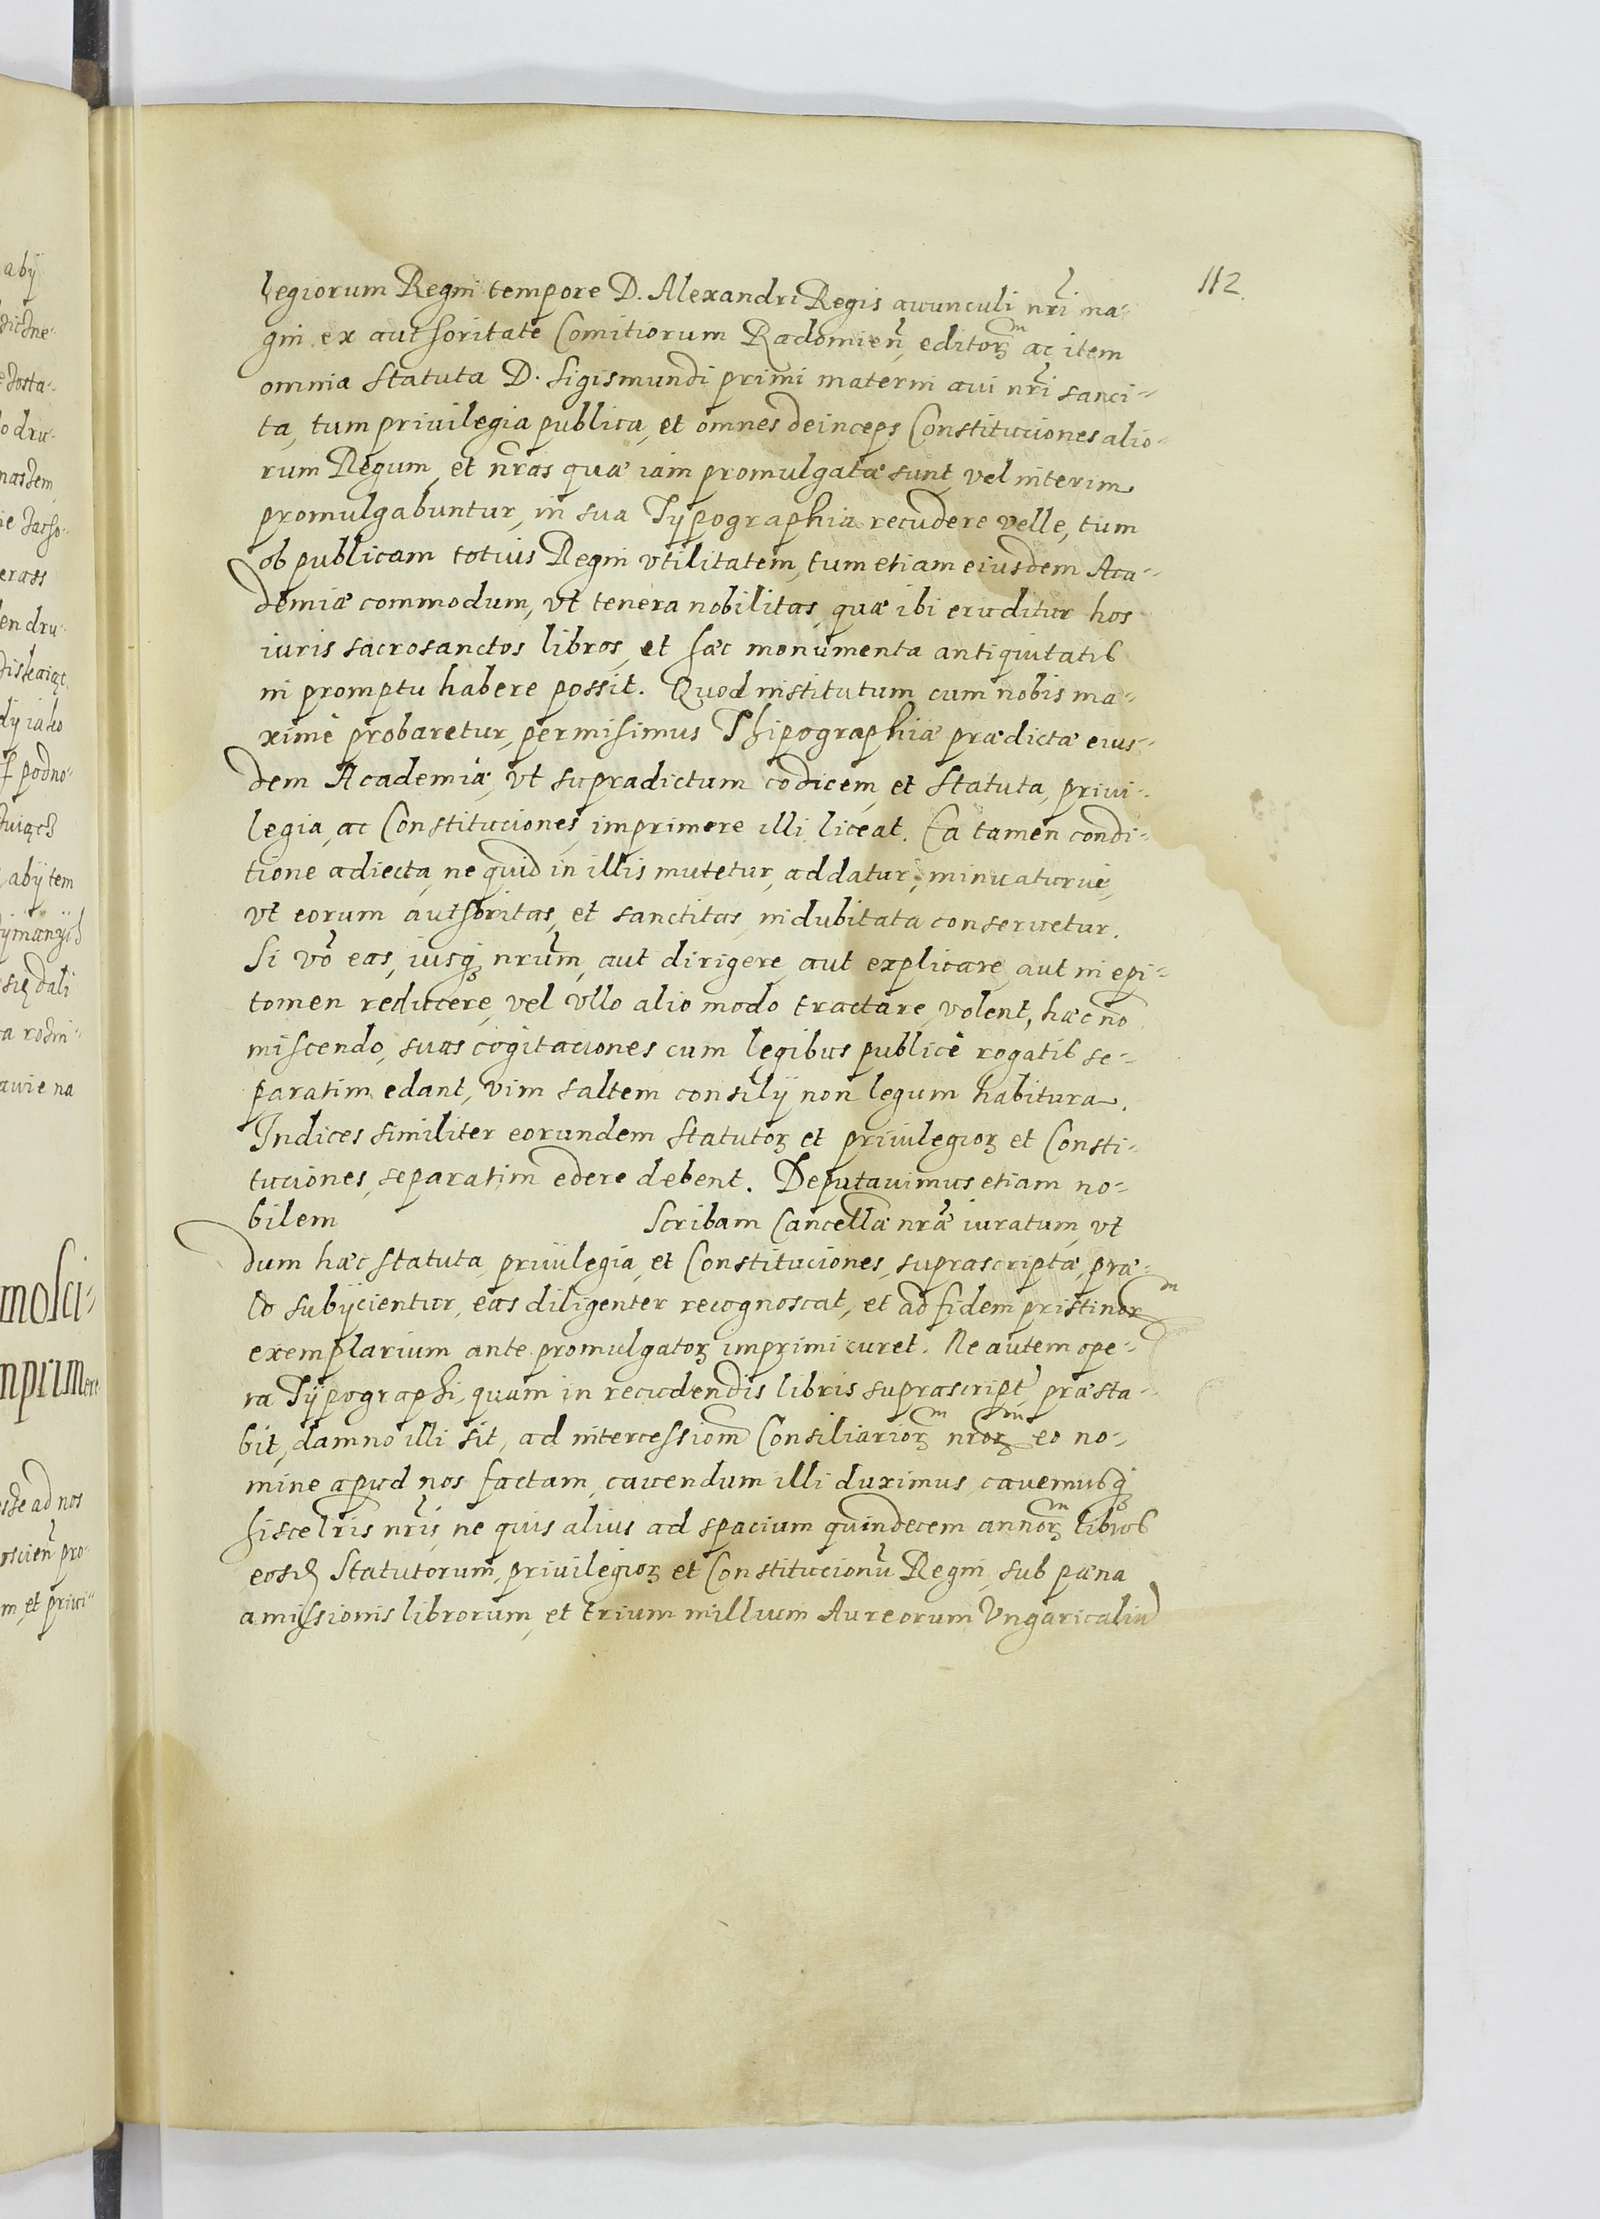 112.
legiorum Regni tempore D. Alexandri Regis avunculi nri ma-
gni ex authoritate Comitiorum Radomien, editorum ac item
omnia Statuta D. Sigismundi primi materni avi nri sanci-
ta, tum privilegia publica, et omnes deinceps Constituciones alio-
rum Regum, et nras quæ iam promulgatæ sunt, vel interim
promulgabuntur, in sua Typographia recudere velle, tum
ob publicam totius Regni vtilitatem, tum etiam eiusdem Aca-
demiæ commodum, vt tenera nobilitas, quæ ibi eruditur hos
iuris sacrosanctos libros, et hæc monumenta antiquitatis
in promptu habere possit. Quod institutum cum nobis ma-
ximè probaretur, permisimus Thipographiæ prædictæ eius-
dem Academiæ, vt supradictum codicem, et Statuta, privi-
legia, ac Constituciones, imprimere illi liceat. Ea tamen condi-
tione adiecta, ne quid in illis mutetur, addatur, minuaturuè,
vt eorum authoritas, et sanctitas, indubitata conservetur.
Si vo eas, iusq nrum, aut dirigere, aut explicare, aut in epi-
tomen reducere, vel vllo alio modo tractare, volent, hæc no
miscendo, suas cogitaciones cum legibus publicè rogatis se-
paratim edant, vim saltem consilij non legum habitura.
Indices similiter eorundem Statutorꝫ et privilegiorꝫ et Consti-
tuciones, separatim edere debent. Deputavimus etiam no-
bilem Scribam Cancellæ nræ iuratum, vt
dum hæc statuta, privilegia, et Constituciones, suprascriptæ, præ-
lo subijcientur, eas diligenter recognoscat, et ad fidem pristinorum
exemplarium ante promulgatorꝫ imprimi curet. Ne autem ope-
ra Typographi, quam in recudendis libris suprascript, præsta-
bit, damno illi sit, ad intercessiom Consiliariorum nrorum eo no-
mine apud nos factam, cavendum illi duximus, cavemusq
hisce lris nris, ne quis alius ad spacium quindecem annorum libros
eosd Statutorum, privilegiorꝫ et Constitucionu Regni, sub pæna
amissionis librorum, et trium millium Aureorum Ungaricaliu